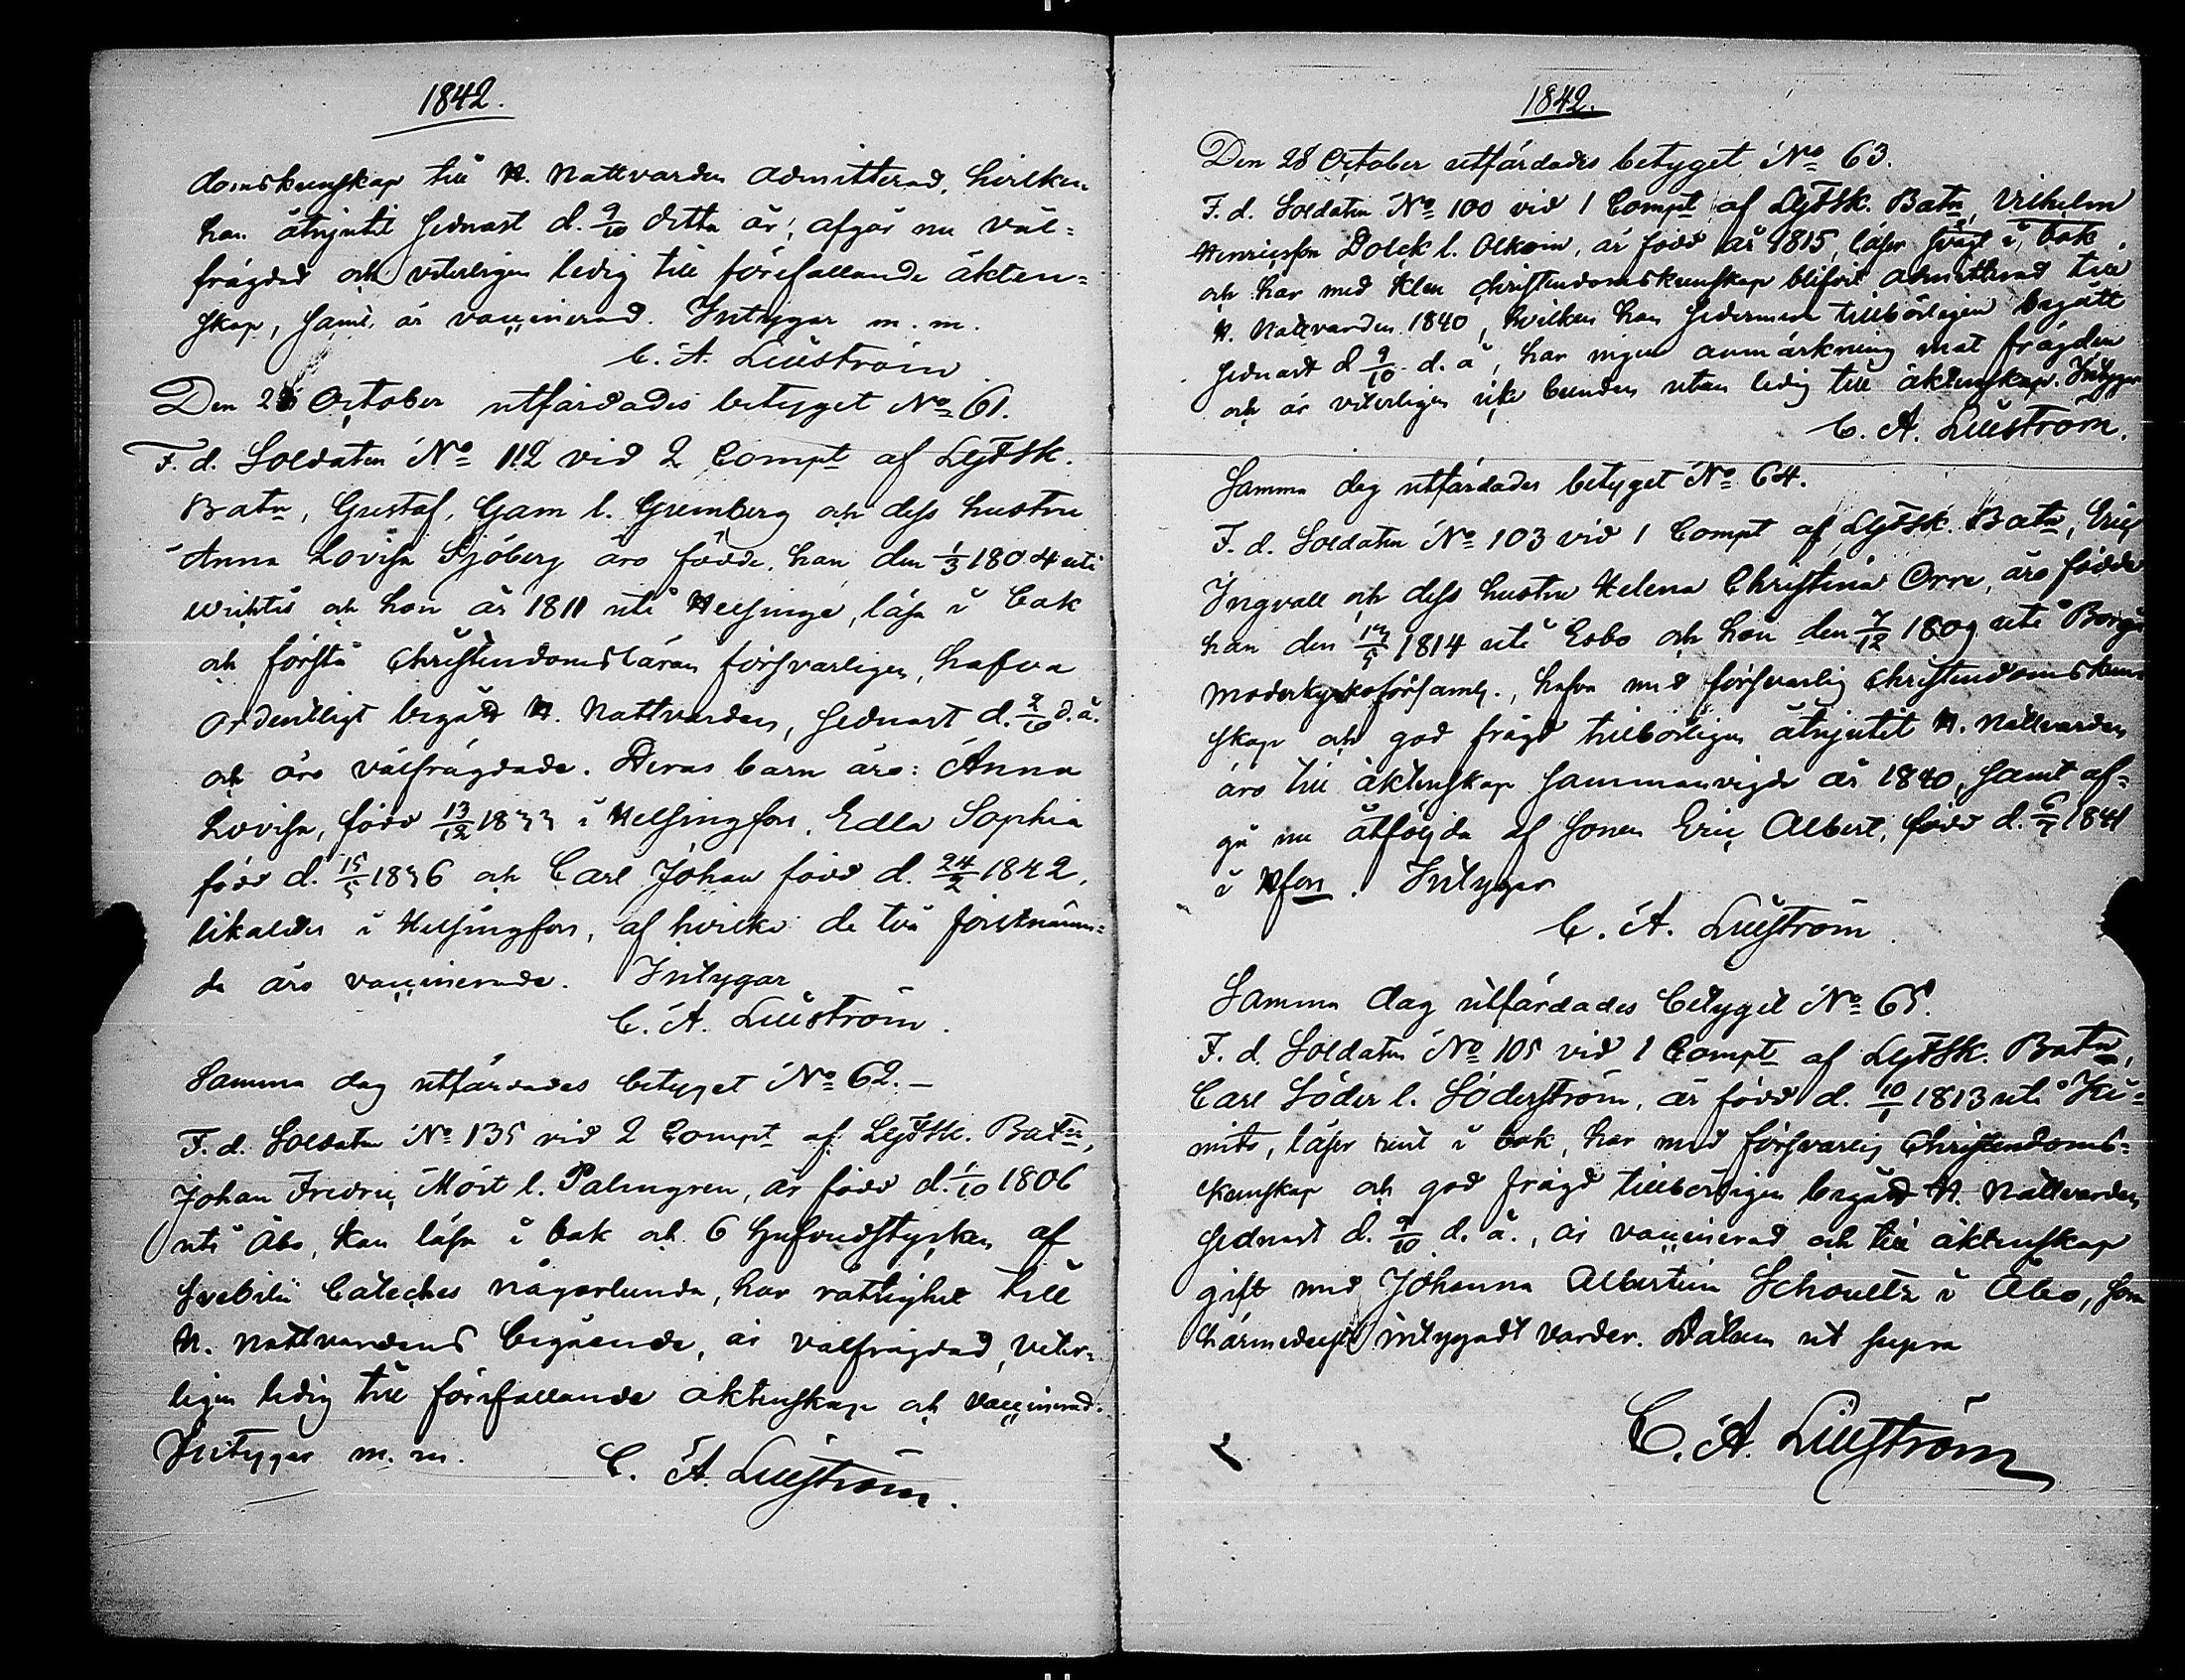 1842.
domskunskap till H. Nattvarden admitterad, hvilken
han åtnjutit sednast d. 9/10 detta år; afgår nu väl=
frägdad och veterligen ledig till förefallande äkten=
skap, samt är vaccinerad. Intygar m. m.
C. A. Liliström
Den 28 October utfärdades betyget No 61.
F. d. Soldaten No 112 vid 2 Compt af LifSk.
Batn, Gustaf Gam l. Gremberg och dess hustru
Anna Lovisa Sjöberg äro födde, han den 1/3 1804 uti
Wichtis och hon år 1811 uti Helsinge, läsa i bok
och förstå Christendomsläran försvarligen, hafva
ordentligt begått H. Nattvarden, sednast d. 2/10 d. å.
och äro välfrägdade. Deras barn äro: Anna
Lovisa, född 13/12 1833 i Helsingfors, Edla Sophia
född d. 15/5 1836 och Carl Johan född d. 24/2 1842,
likaledes i Helsingfors, af hvilka de två förstnämn=
da äro vaccinerade. Intygar
C. A. Liliström.
Samma dag utfärdades betyget No 62.—
F. d. Soldaten No 135 vid 2 Compt af LifSk. Batn,
Johan Fredric Mört l. Palmgren, är född d. 1/10 1806
uti Åbo, kan läsa i bok och 6 hufvudstycken af
Svebilii Cateches någorlunda, har rättighet till
H. Nattvardens begående, är välfrägdad, veter=
ligen ledig till förefallande äktenskap och vaccinerad.
Intygar m. m.
C. A. Liliström.
1842.
Den 28 October utfärdades betyget No 63.
F. d. Soldaten No 100 vid 1 Compt af LifSk. Batn, Vilhelm
Henricsson Dolck l. Olkoin, är född år 1815, läser svagt i bok
och har med klen Christendomskunskap blifvit admitterad till
H. Nattvarden 1840, hvilken han sedermera tillbörligen begått
sednast d 9/10 d. å, har ingen anmärkning mot frägden
och är veterligen icke bunden utan ledig till äktenskap. Intygar
C. A. Liliström.
Samma dag utfärdades betyget No 64.
F. d. Soldaten No 103 vid 1 Compt af LifSk. Batn, Eric
Ingvall och dess hustru Helena Christina Orre, äro födde
han den 1814 uti Esbo och hon den 7/12 1809 uti Borgå
moderkyrkoförsaml., hafva med försvarlig Christendomskun=
skap och god frägd tillbörligen åtnjutit H. Nattvarden
äro till äktenskap sammanvigde år 1840, samt af=
gå nu åtföljda af sonen Eric Albert, född d. 6/7 1841
i Hfors. Intygar
C. A. Liliström.
Samma dag utfärdades betyget No 65.
F. d. Soldaten No 105 vid 1 Compt af LifSk. Batn,
Carl Söder l. Söderström, är född d. 10/1 1813 uti Ki=
mito, läser rent i bok, har med försvarlig Christendoms=
kunskap och god frägd tillbörligen begått H. Nattvarden
sednast d. 9/10 d. å., är vaccinerad och till äktenskap
gift med Johanna Albertina Schoultz i Åbo, som
härmedelst intygadt varder. Datum ut supra
C. A. Liliström